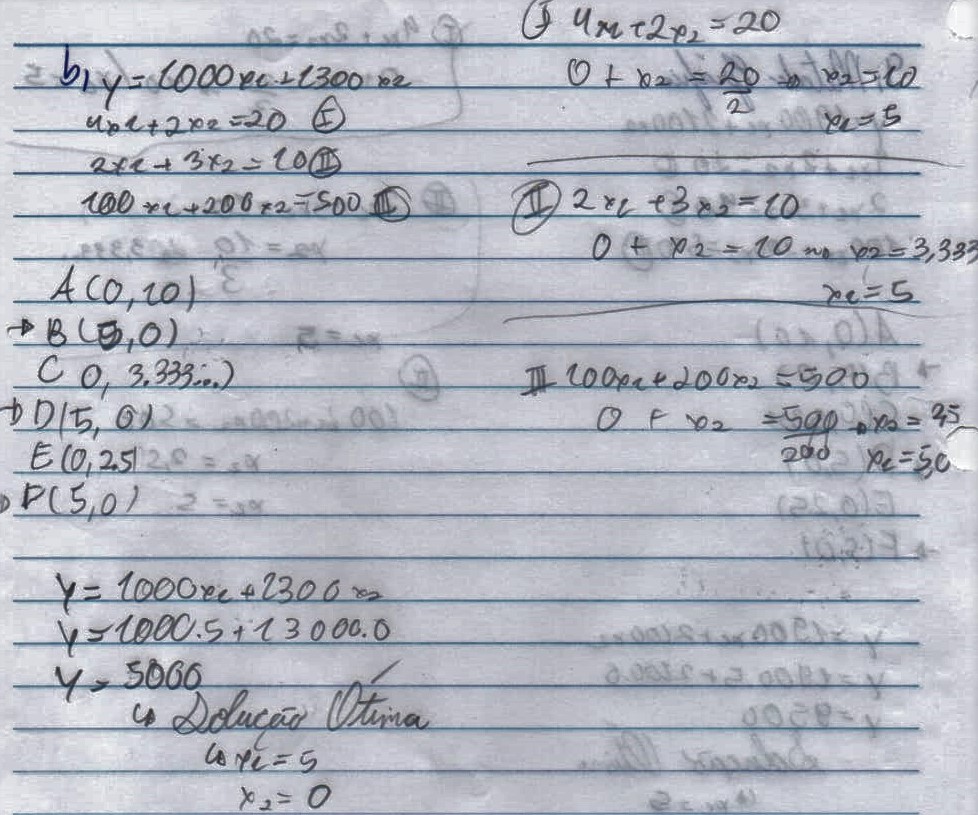 b) y = 1000x1 + 1300x2
4x1 + 2x2 = 20 (I)
2x1 + 3x2 = 10 (II)
100x1 + 200x2 = 500 (III)
A (0, 10)
→ B (5, 0)
C 0, 3.333...)
→ D (5, 0)
E (0, 2.5)
→ F (5, 0)
y = 1000x1 + 1300x2
y = 1000.5 + 13000.0
y = 5000
↳ Solução Ótima
↳ x1 = 5
x2 = 0
(I) 4x1 + 2x2 = 20
0 + x2 = 20/2 → x2 = 10
x1 = 5
(II) 2x1 + 3x2 = 10
0 + x2 = 10 → x2 = 3,333
x1 = 5
III 100x1 + 200x2 = 500
0 + x2 = 500/200 → x2 = 2,5
x1 = 5,0